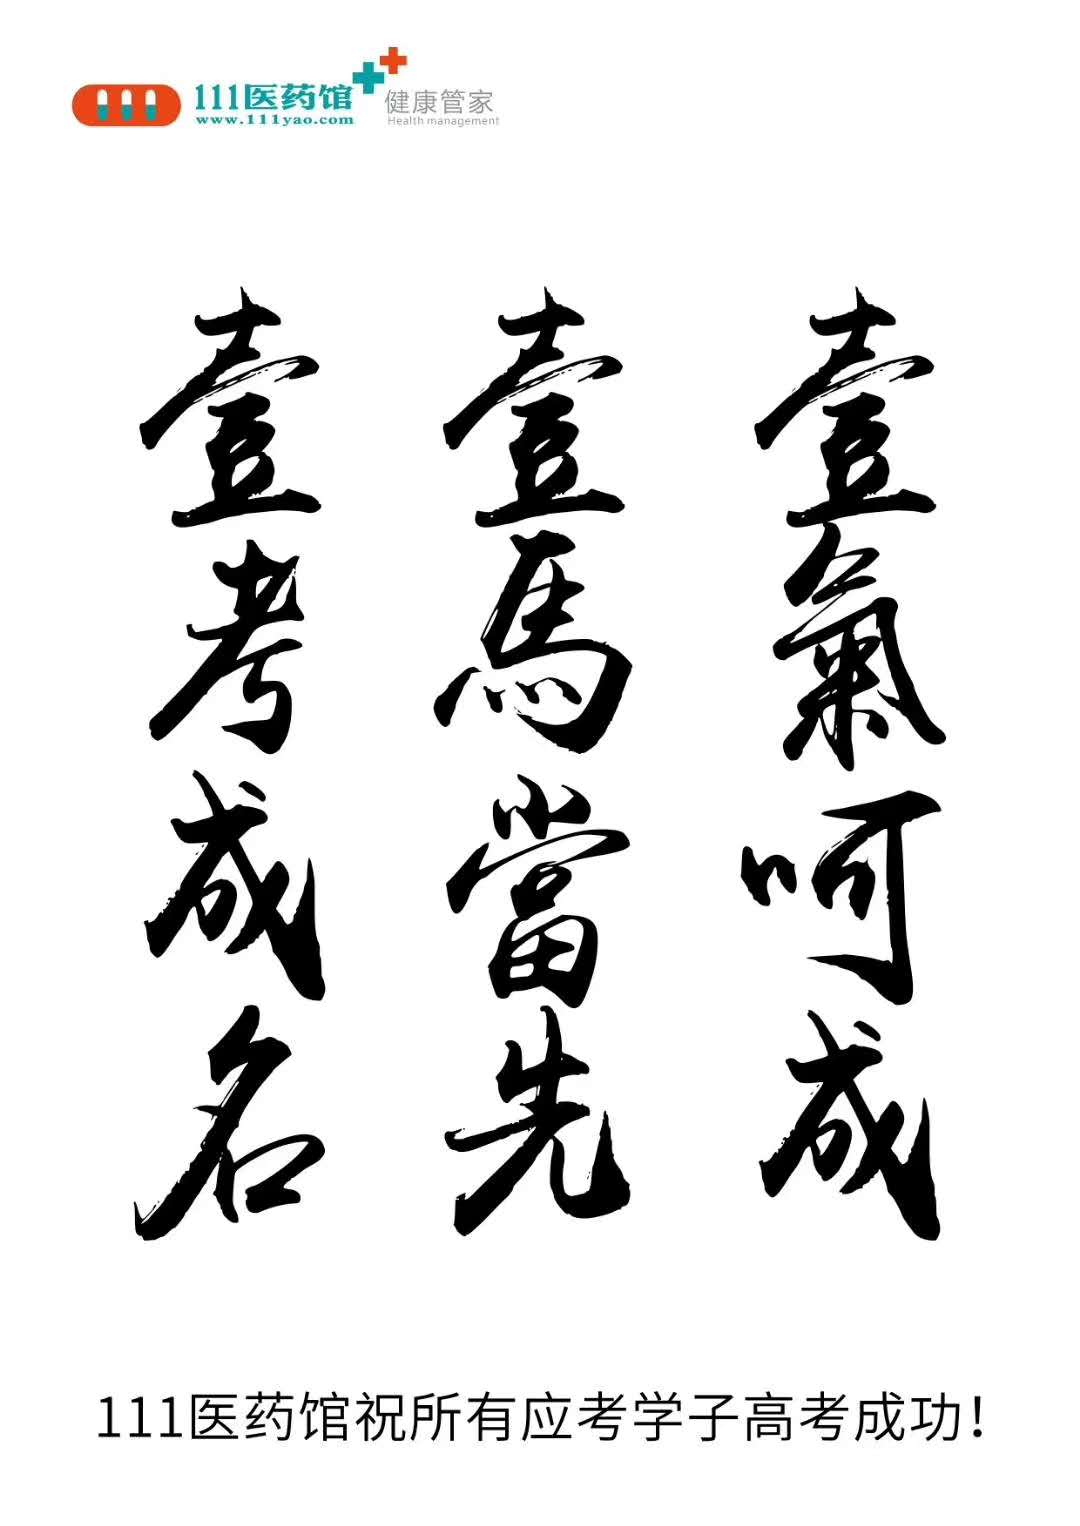 111医药馆
www.111yao.com
健康管家
Health management
壹氣呵成
壹馬當先
壹考成名
111医药馆祝所有应考学子高考成功！